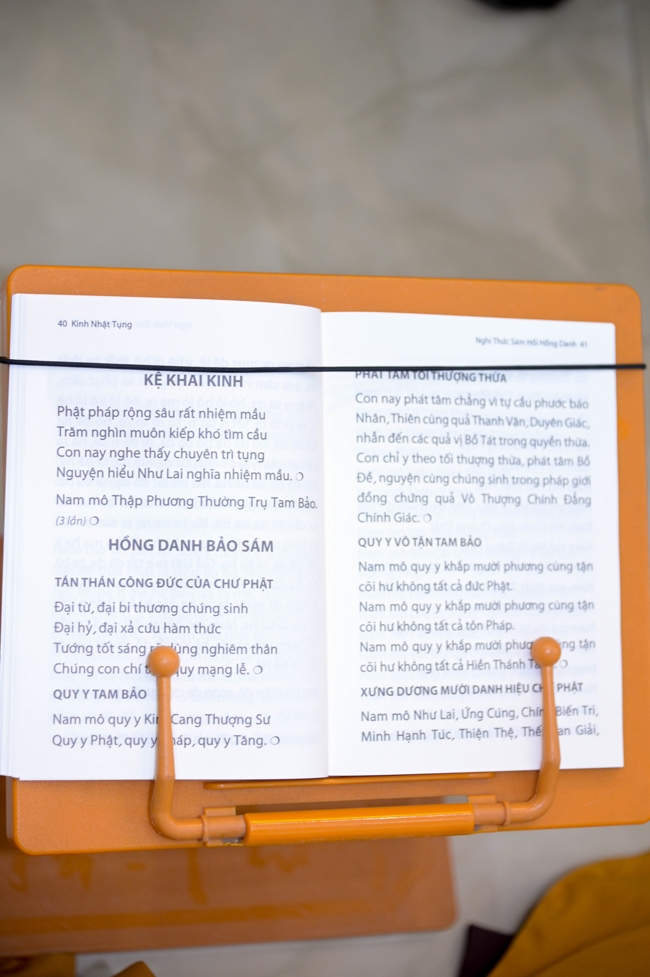 40 Kinh Nhật Tụng
KỆ KHAI KINH
Phật pháp rộng sâu rất nhiệm mầu
Trăm nghìn muôn kiếp khó tìm cầu
Con nay nghe thấy chuyên trì tụng
Nguyện hiểu Như Lai nghĩa nhiệm mầu. ❍
Nam mô Thập Phương Thường Trụ Tam Bảo.
(3 lần) ❍
HỒNG DANH BẢO SÁM
TÁN THÁN CÔNG ĐỨC CỦA CHƯ PHẬT
Đại từ, đại bi thương chúng sinh
Đại hỷ, đại xả cứu hàm thức
Tướng tốt sáng dùng nghiêm thân
Chúng con chí quy mạng lễ. ❍
QUY Y TAM BẢO
Nam mô quy y Cang Thượng Sư
Quy y Phật, quy y quy y Tăng. ❍
Nghi Thức Sám Hối Hồng Danh 41
PHÁT TÂM TỐI THƯỢNG THỪA
Con nay phát tâm chẳng vì tự cầu phước báo
Nhân, Thiên cùng quả Thanh Văn, Duyên Giác,
nhẫn đến các quả vị Bồ Tát trong quyền thừa.
Con chỉ y theo tối thượng thừa, phát tâm Bồ
Đề, nguyện cùng chúng sinh trong pháp giới
đồng chứng quả Vô Thượng Chính Đẳng
Chính Giác. ❍
QUY Y VÔ TẬN TAM BẢO
Nam mô quy y khắp mười phương cùng tận
cõi hư không tất cả đức Phật.
Nam mô quy y khắp mười phương cùng tận
cõi hư không tất cả tôn Pháp.
Nam mô quy y khắp mười phương cùng tận
cõi hư không tất cả Hiền Thánh ❍
XƯNG DƯƠNG MƯỜI DANH HIỆU PHẬT
Nam mô Như Lai, Ứng Cúng, Biến Tri,
Minh Hạnh Túc, Thiện Thệ, Giải,